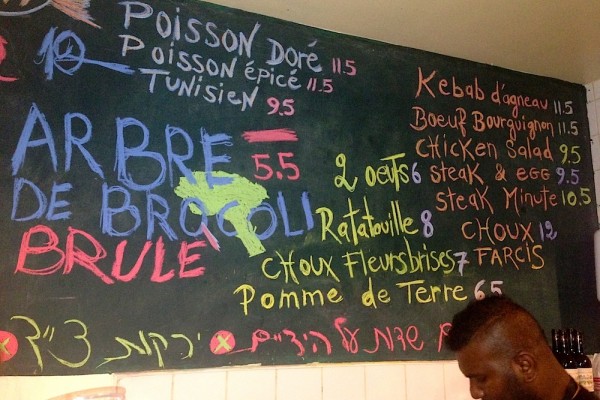 POISSON DORé 11.5
POISSON épicé 11.5
TUNISIEN 9.5
ARBRE
DE BROCOLI
5.5
BRULE
Kebab d'agneau 11.5
Boeuf Bourguignon 11.5
CHICKEN Salad 9.5
2 oeufs 6
STEAK & EGG 9.5
STEAK Minute 10.5
Ratatouille 8
CHOUX 12
FARCIS
CHOUX Fleurs brises 7
Pomme de Terre 6.5
שדות על הידיים
ירקות